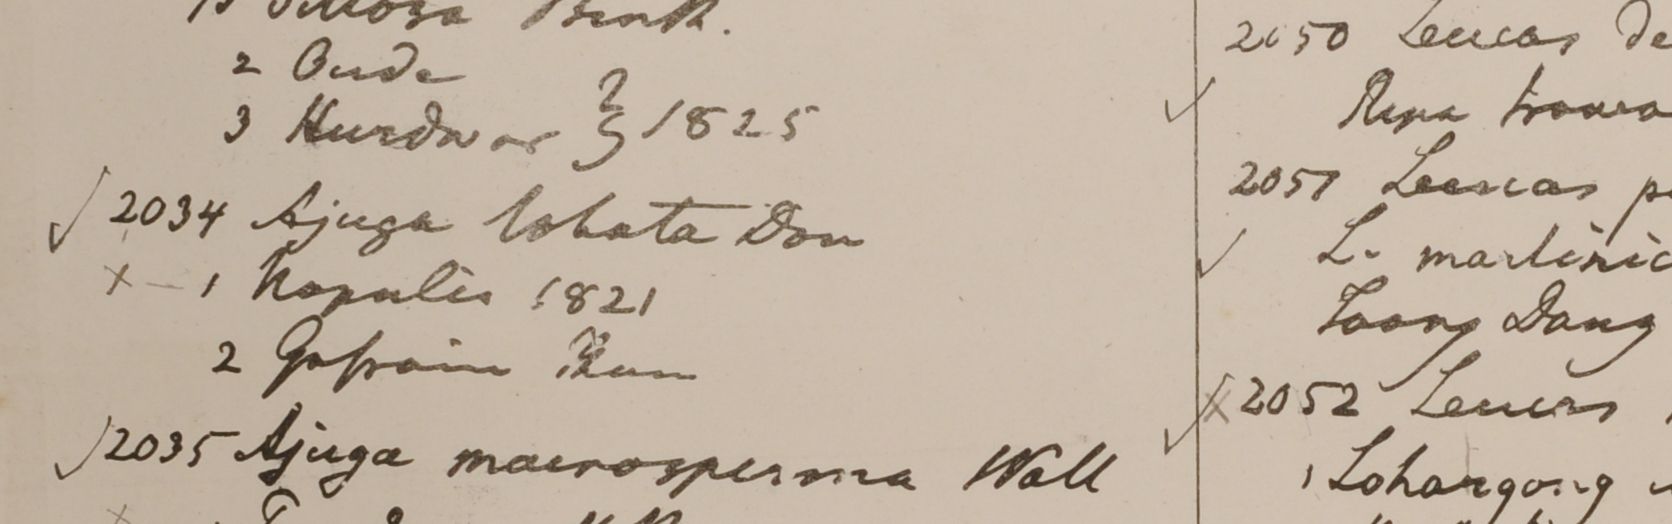 Benth.
2 Oude
3 Hurdwar } 1825
2034 Ajuga lobata Don
1 Napalia 1821
2 Gossain Than
2035 Ajuga macrosperma Wall
2050 Leucas de
2051 Leucas
L. martinic
Taong Dong
2052 Leucas
1 Lohargong